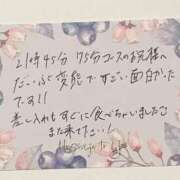 21時45分 75分コースのお客様へ
だいぶ変態ですごい面白かった
です!!
差し入れもすぐに食べちゃいました
また来てたい!